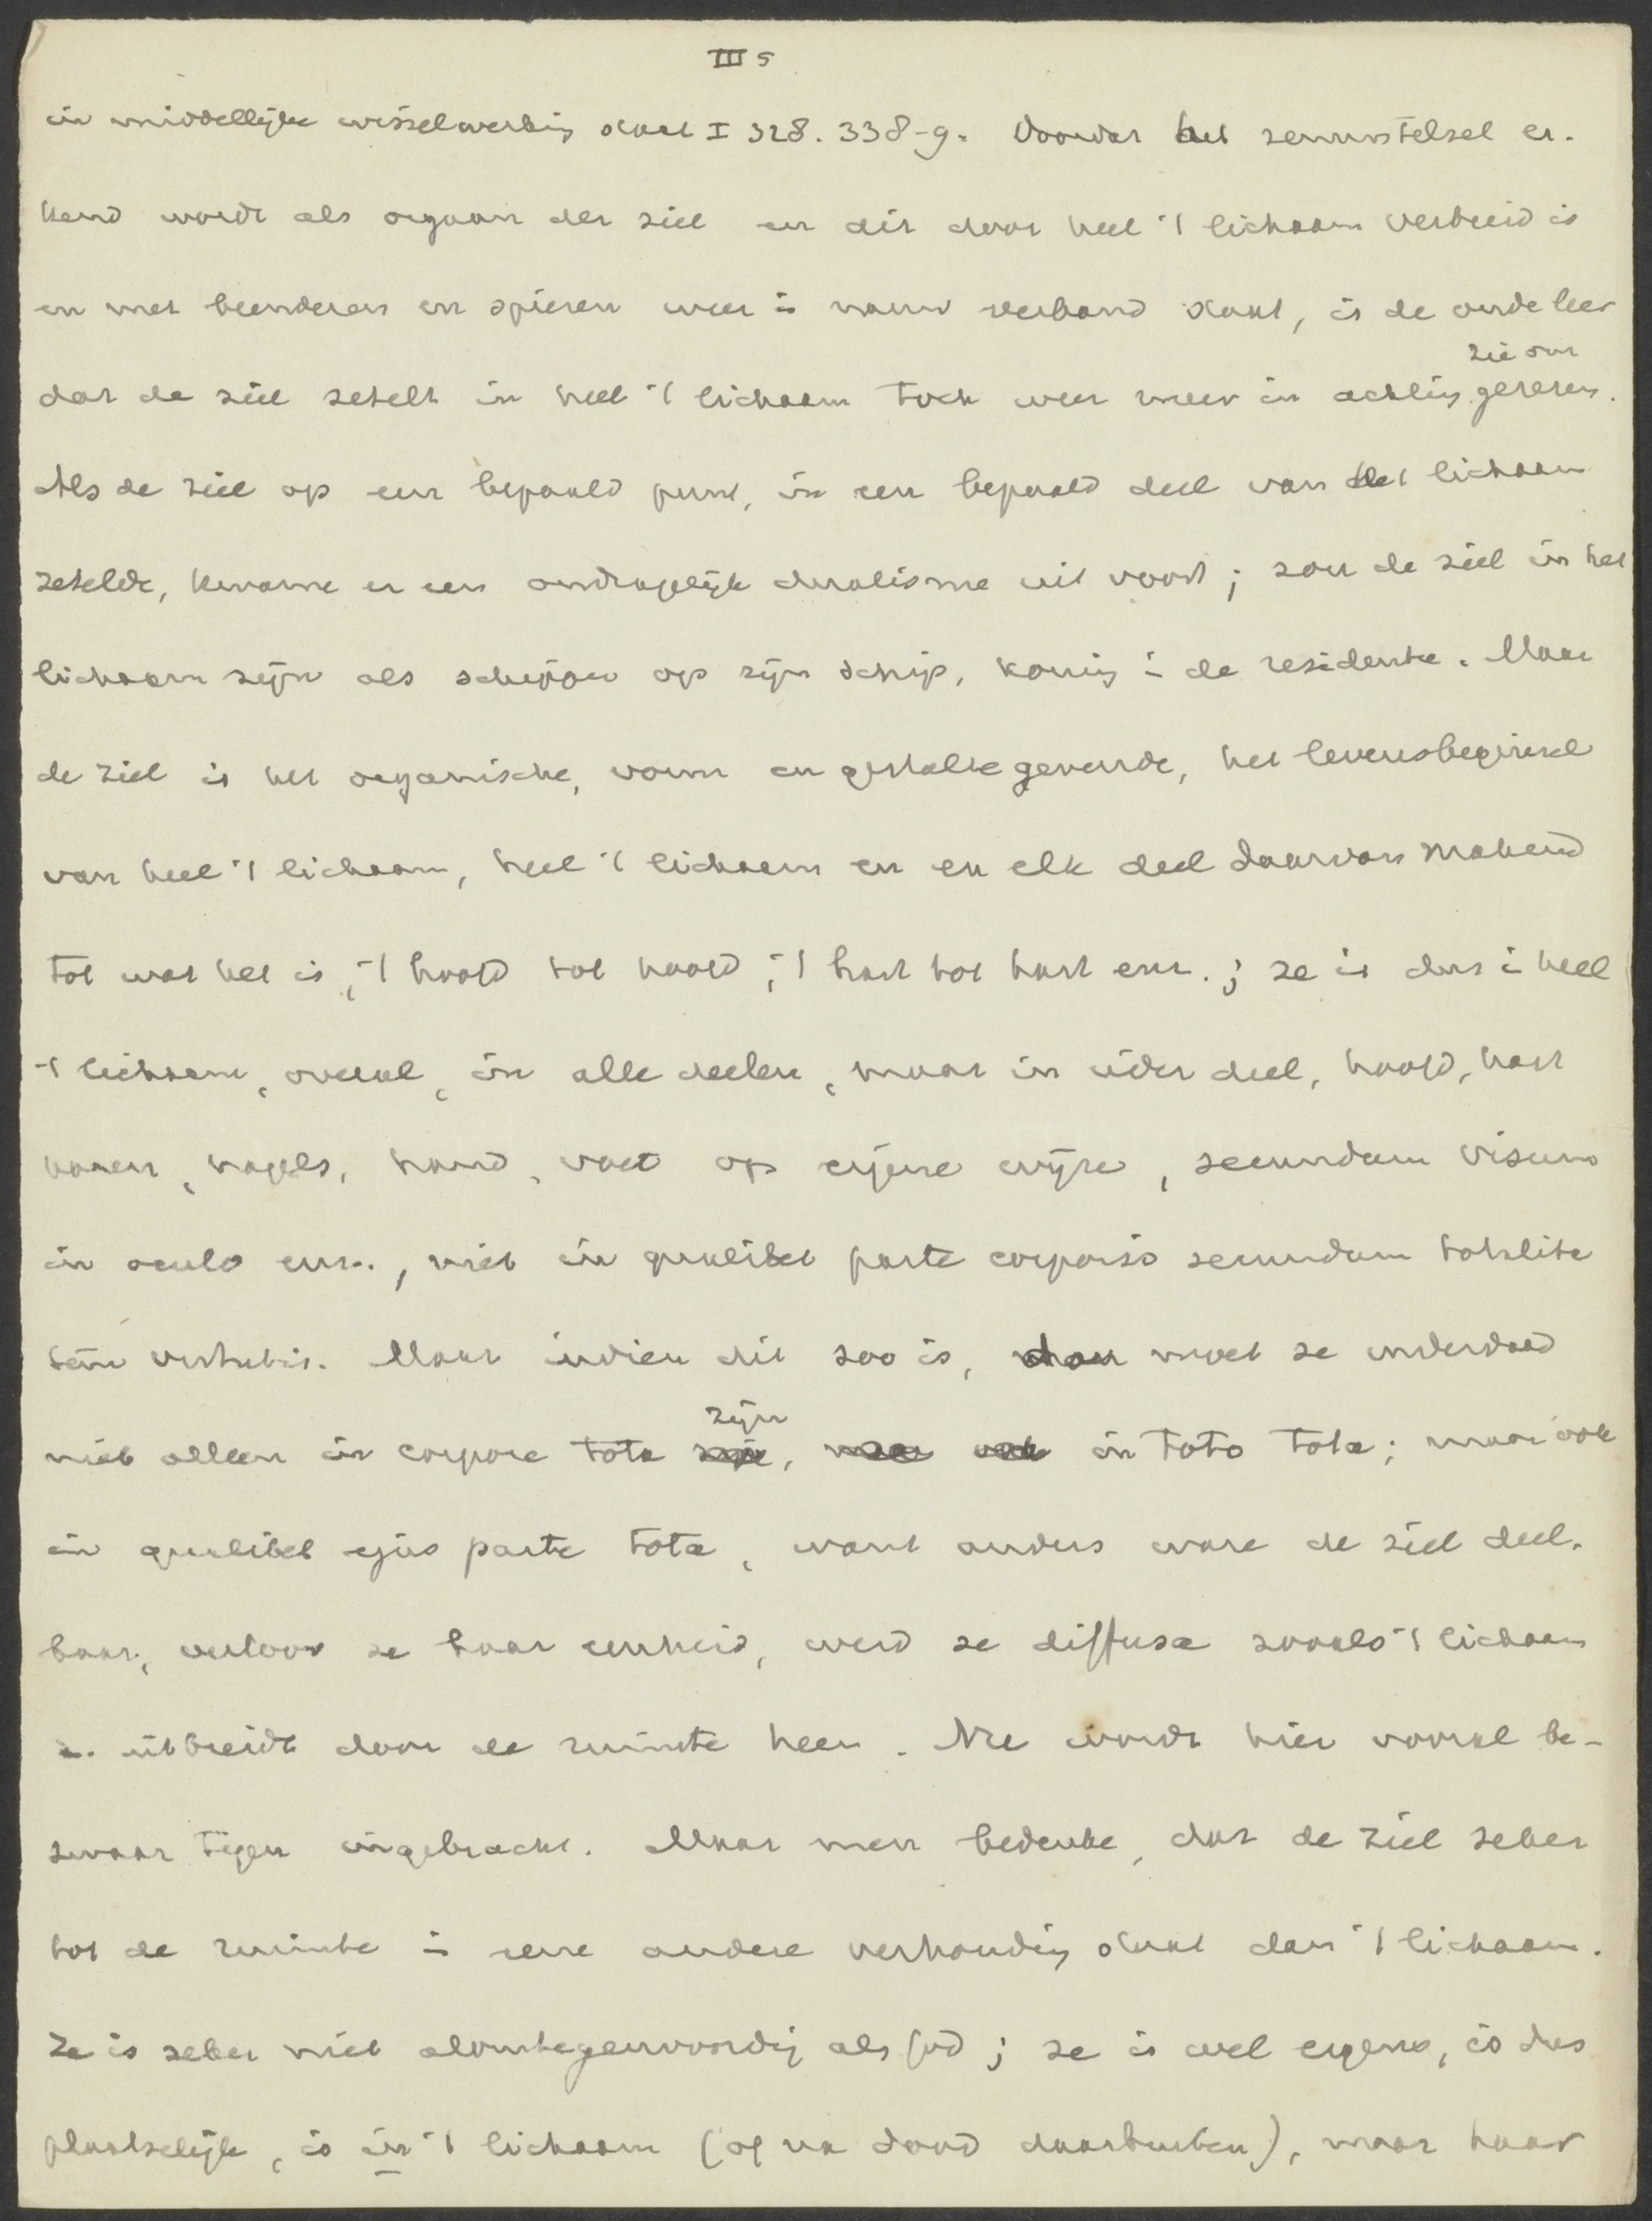 III 5
in middellijke wisselwerking staat I 328. 338-9. Doordat het zenuwstelsel er-
kend wordt als orgaan der ziel en dit door heel 't lichaam verbreid is
en met beenderen en spieren weer in nauw verband staat, is de oude leer
zie om
dat de ziel zetelt in heel 't lichaam toch weer meer in achting gerezen.
Als de ziel op een bepaald punt, in een bepaald deel van het lichaam
zetelde, kwame er een ondragelijk dualisme uit voort; zou de ziel in het
lichaam zijn als schipper op zijn schip, koning in de residentie. Maar
de ziel is het organische, vorm en gestalte gevende, het levensbeginsel
van heel 't lichaam, heel 't lichaam en en elk deel daarvan makend
tot wat het is, 't hoofd tot hoofd, 't hart tot hart enz.; ze is dus in heel
't lichaam, overal, in alle deelen, maar in ieder deel, hoofd, hart
haren, nagels, hand, voet op eigene wijze, secundum visum
in oculo enz., niet in qualibet parte corporis secundum totalita
tem virtutis. Maar indien dit zoo is, dan moet ze inderdaad
zijn
niet alleen in corpore tota, in toto tota; maar ook
in qualibet ejus parte tota, want anders ware de ziel deel-
baar, verloor ze haar eenheid, werd ze diffusa zooals 't lichaam
uitbreidt door de ruimte heen. Nu wordt hier vooral be-
zwaar tegen ingebracht. Maar men bedenke, dat de ziel zeker
tot de ruimte in eene andere verhouding staat dan 't lichaam.
Ze is zeker niet alomtegenwoordig als God; ze is wel ergens, is dus
plaatselijk, is in 't lichaam (of na dood daarbuiten), maar haar